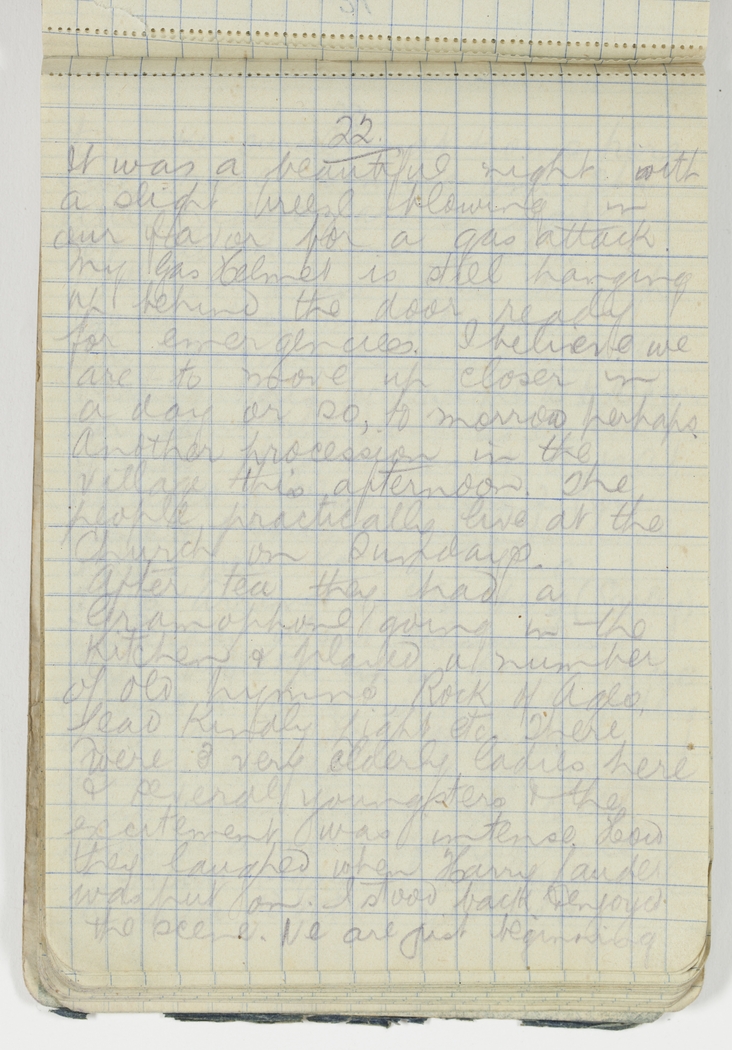 22.
It was a beautiful night with
a slight breese blowing in
our favor for a gas attack.
My Gas Helmet is still hanging
up behind the door ready
for emergencies. I believe we
are to move up closer in
a day or so, to morrow perhaps
Another procession in the
village this afternoon. The
people practically live at the
Church on Sundays.
After tea they had a
Gramophone going in the
Kitchen & played a number
of old hymns Rock of Ages,
Lead Kindly Light etc. There
were 3 very elderly ladies here
& several youngsters & the
excitement was intense. How
they laughed when Harry Lauder
was put on. I stood back & enjoyed
the scene. We are just beginning